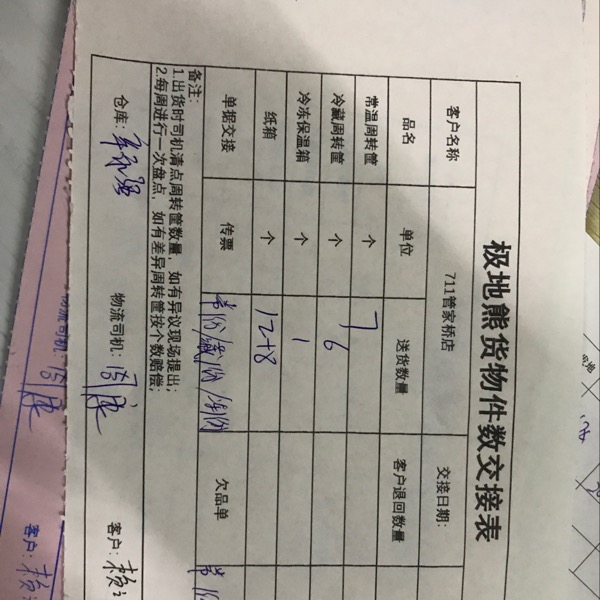 极地熊货物件数交接表
客户名称 711管家桥店 交接日期:
品名 单位 送货数量 客户退回数量
常温周转筐 个 7
冷藏周转筐 个 6
冷冻保温箱 个 1
纸箱 个 17+8
单据交接 传票 欠品单
备注:
1.出货时司机清点周转筐数量,如有异议现场提出;
2.每周进行一次盘点,如有差异周转筐按个数赔偿;
仓库: 物流司机: 客户:
物流司机: 客户: